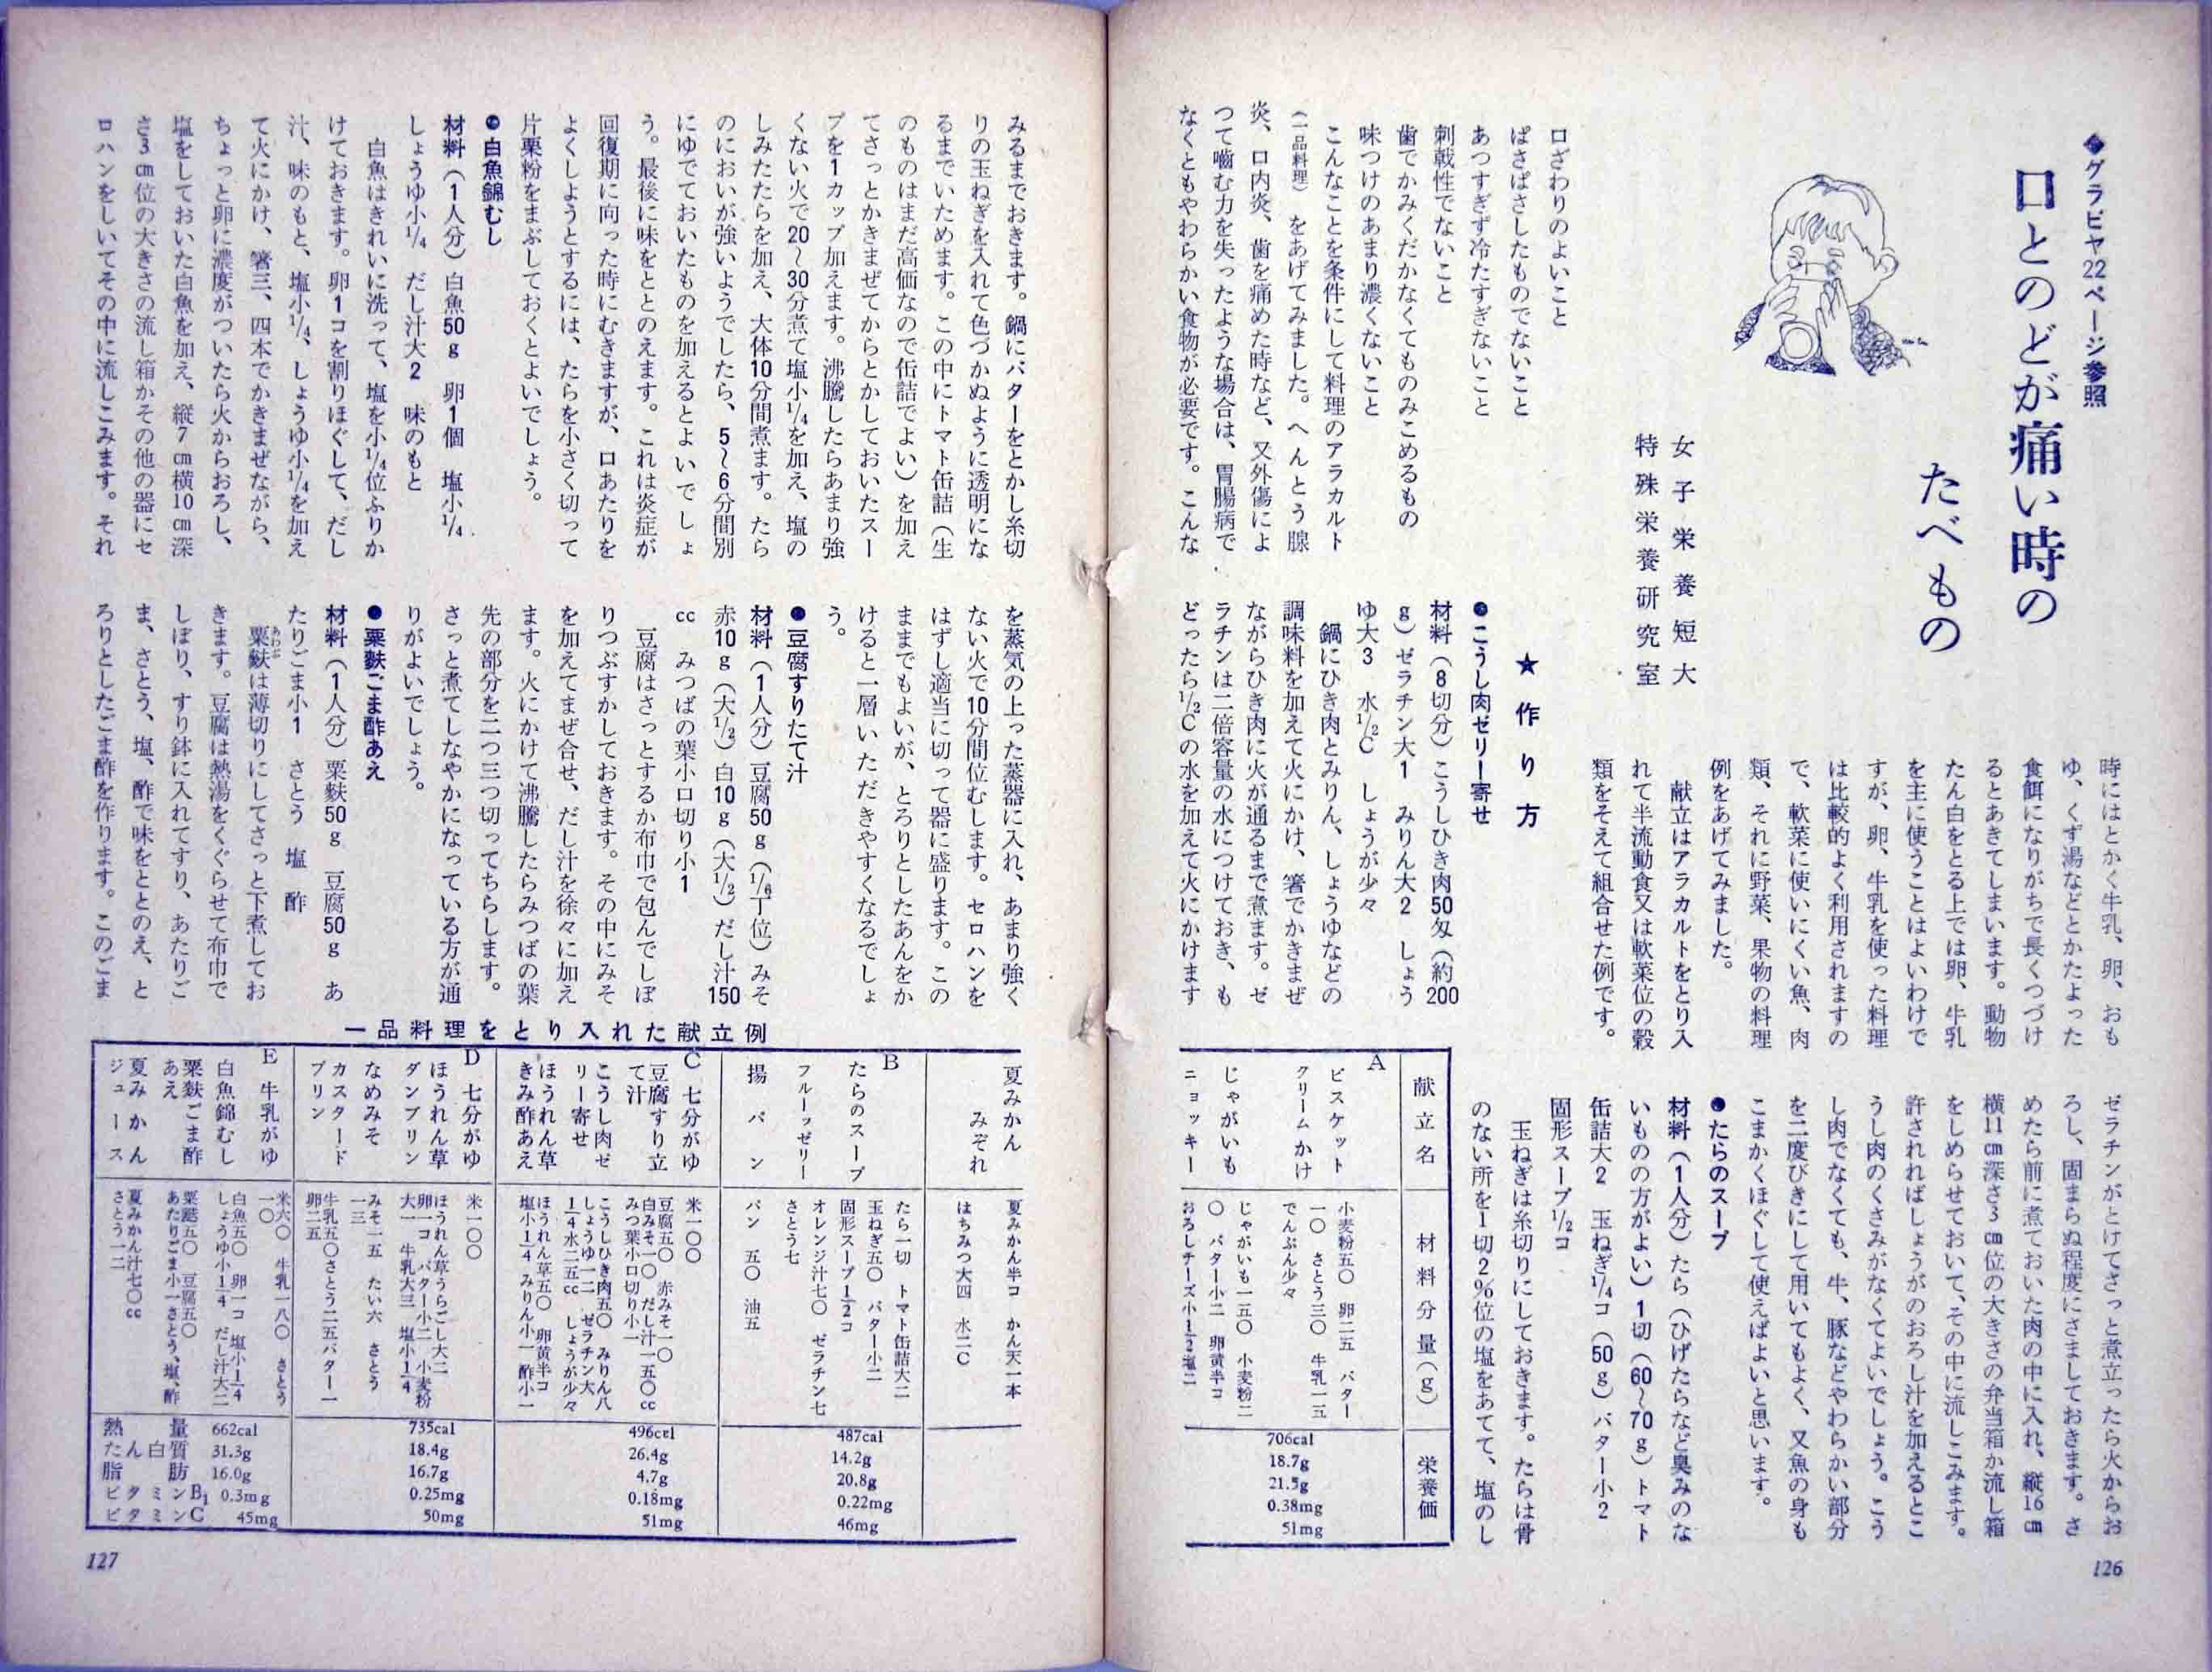 ◆グラビヤ22ページ参照
口とのどが痛い時の
たべもの
女子栄養短大
特殊栄養研究室
口ざわりのよいこと
ぱさぱさしたものでないこと
あつすぎず冷たすぎないこと
刺戟性でないこと
歯でかみくだかなくてものみこめるもの
味つけのあまり濃くないこと
こんなことを条件にして料理のアラカルト
(一品料理) をあげてみました。へんとう腺
炎、口内炎、歯を痛めた時など、又外傷によ
つて噛む力を失ったような場合は、胃腸病で
なくともやわらかい食物が必要です。こんな
時にはとかく牛乳、卵、おも
ゆ、くず湯などとかたよった
食餌になりがちで長くつづけ
るとあきてしまいます。動物
たん白をとる上では卵、牛乳
を主に使うことはよいわけで
すが、卵、牛乳を使った料理
は比較的よく利用されますの
で、軟菜に使いにくい魚、肉
類、それに野菜、果物の料理
例をあげてみました。
献立はアラカルトをとり入
れて半流動食又は軟菜位の穀
類をそえて組合せた例です。
★作り方
●こうし肉ゼリー寄せ
材料(8切分)こうしひき肉50匁(約200
g)ゼラチン大1 みりん大2 しょう
ゆ大3 水1/2C しょうが少々
鍋にひき肉とみりん、しょうゆなどの
調味料を加えて火にかけ、箸でかきまぜ
ながらひき肉に火が通るまで煮ます。ゼ
ラチンは二倍容量の水につけておき、も
どったら1/2Cの水を加えて火にかけます
ゼラチンがとけてさっと煮立ったら火からお
ろし、固まらぬ程度にさましておきます。さ
めたら前に煮ておいた肉の中に入れ、縦16cm
横11cm深さ3cm位の大きさの弁当箱か流し箱
をしめらせておいて、その中に流しこみます。
許されればしょうがのおろし汁を加えるとこ
うし肉のくさみがなくてよいでしょう。こう
し肉でなくても、牛、豚などやわらかい部分
を二度びきにして用いてもよく、又魚の身も
こまかくほぐして使えばよいと思います。
●たらのスープ
材料(1人分)たら(ひげたらなど臭みのな
いものの方がよい)1切(60～70g)トマト
缶詰大2 玉ねぎ1/4コ(50g)バター小2
固形スープ1/2コ
玉ねぎは糸切りにしておきます。たらは骨
のない所を1切2%位の塩をあてて、塩のし
献立名
材料分量(g)
栄養価
A
ビスケット
クリームかけ
じゃがいも
ニョッキー
小麦粉五〇 卵二五 バター
一〇 さとう三〇 牛乳一五
でんぷん少々
じゃがいも一五〇 小麦粉二
〇 バター小二 卵黄半コ
おろしチーズ小1/2塩二
706cal
18.7g
21.5g
0.38mg
51mg
126
みるまでおきます。鍋にバターをとかし糸切
りの玉ねぎを入れて色づかぬように透明にな
るまでいためます。この中にトマト缶詰(生
のものはまだ高価なので缶詰でよい)を加え
てさっとかきまぜてからとかしておいたスー
プを1カップ加えます。沸騰したらあまり強
くない火で20～30分煮て塩小1/4を加え、塩の
しみたたらを加え、大体10分間煮ます。たら
のにおいが強いようでしたら、5～6分間別
にゆでておいたものを加えるとよいでしょ
う。最後に味をととのえます。これは炎症が
回復期に向った時にむきますが、口あたりを
よくしようとするには、たらを小さく切って
片栗粉をまぶしておくとよいでしょう。
●白魚錦むし
材料(1人分)白魚50g 卵1個 塩小1/4
しょうゆ小1/4 だし汁大2 味のもと
白魚はきれいに洗って、塩を小1/4位ふりか
けておきます。卵1コを割りほぐして、だし
汁、味のもと、塩小1/4、しょうゆ小1/4を加え
て火にかけ、箸三、四本でかきまぜながら、
ちょっと卵に濃度がついたら火からおろし、
塩をしておいた白魚を加え、縦7cm横10cm深
さ3cm位の大きさの流し箱かその他の器にセ
ロハンをしいてその中に流しこみます。それ
を蒸気の上った蒸器に入れ、あまり強く
ない火で10分間位むします。セロハンを
はずし適当に切って器に盛ります。この
ままでもよいが、とろりとしたあんをか
けると一層いただきやすくなるでしょ
う。
●豆腐すりたて汁
材料(1人分)豆腐50g(1/6丁位)みそ
赤10g(大1/2)白10g(大1/2)だし汁150
cc みつばの葉小口切り小1
豆腐はさっとするか布巾で包んでしぼ
りつぶすかしておきます。その中にみそ
を加えてまぜ合せ、だし汁を徐々に加え
ます。火にかけて沸騰したらみつばの葉
先の部分を二つ三つ切ってちらします。
さっと煮てしなやかになっている方が通
りがよいでしょう。
●粟麩ごま酢あえ
材料(1人分)粟麩50g 豆腐50g あ
たりごま小1 さとう 塩 酢
粟麩は薄切りにしてさっと下煮してお
あわぶ
きます。豆腐は熱湯をくぐらせて布巾で
しぼり、すり鉢に入れてすり、あたりご
ま、さとう、塩、酢で味をととのえ、と
ろりとしたごま酢を作ります。このごま
一品料理をとり入れた献立例
夏みかん
みぞれ
夏みかん半コ かん天一本
はちみつ大四 水二C
B
たらのスープ
フルーツゼリー
揚パン
たら一切 トマト缶詰大二
玉ねぎ五〇 バター小二
固形スープ1/2コ
オレンジ汁七〇 ゼラチン七
さとう七
パン 五〇 油五
487cal
14.2g
20.8g
0.22mg
46mg
C 七分がゆ
豆腐すり立
て汁
こうし肉ゼ
リー寄せ
ほうれん草
きみ酢あえ
米一〇〇
豆腐五〇 赤みそ一〇
白みそ一〇 だし汁一五〇cc
みつ葉小口切り小一
こうしひき肉五〇 みりん八
しょうゆ一二 ゼラチン大
1/4水二五cc しょうが少々
ほうれん草五〇 卵黄半コ
塩小1/4 みりん小一 酢小一
496cal
26.4g
4.7g
0.18mg
51mg
D 七分がゆ
ほうれん草
ダンプリン
なめみそ
カスタード
プリン
米一〇〇
ほうれん草うらごし大二
卵一コ バター小二 小麦粉
大一 牛乳大三 塩小1/4
みそ一五 たい六 さとう
一三
牛乳五〇さとう二五バター一
卵二五
735cal
18.4g
16.7g
0.25mg
50mg
E 牛乳がゆ
白魚錦むし
粟麩ごま酢
あえ
夏みかん
ジュース
米六〇 牛乳一八〇 さとう
一〇
白魚五〇 卵一コ 塩小1/4
しょうゆ小1/4 だし汁大二
粟麩五〇 豆腐五〇
あたりごま小一さとう、塩、酢
夏みかん汁七〇cc
さとう一二
熱量 662cal
たん白質 31.3g
脂肪 16.0g
ビタミンB1 0.3mg
ビタミンC 45mg
127